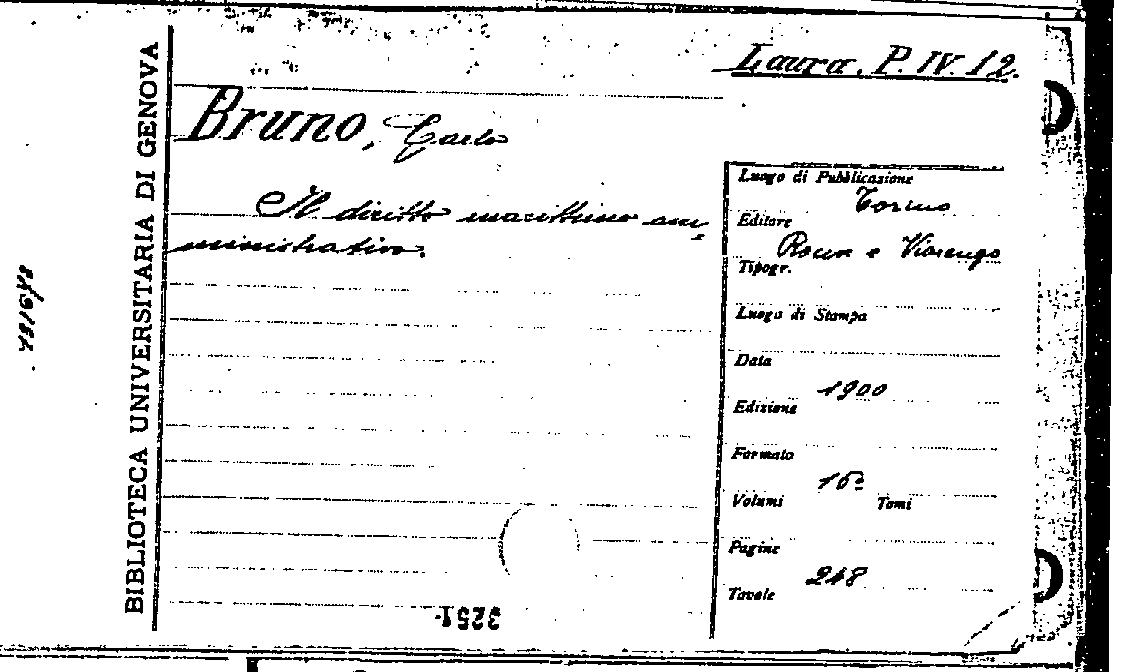 Laura. P. IV. 12.
BIBLIOTECA UNIVERSITARIA DI GENOVA
Bruno, Carlo
Il diritto marittimo am-
ministrativo.
Luogo di Pubblicazione
Torino
Editore
Roux e Viarengo
Tipogr.
Luogo di Stampa
Data
1900
Edizione
Formato
16º
Volumi Tomi
Pagine
248
Tavole
3251